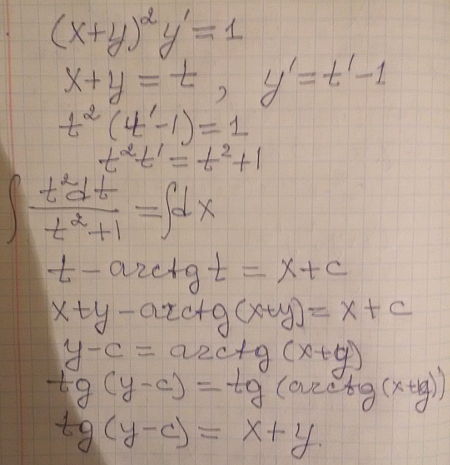 (x+y)² y' = 1
x+y = t , y' = t'-1
t² (t'-1) = 1
t² t' = t²+1
∫ t²dt / t²+1 = ∫dx
t - arctg t = x+c
x+y - arctg (x+y) = x+c
y-c = arctg (x+y)
tg (y-c) = tg (arctg (x+y))
tg (y-c) = x+y.